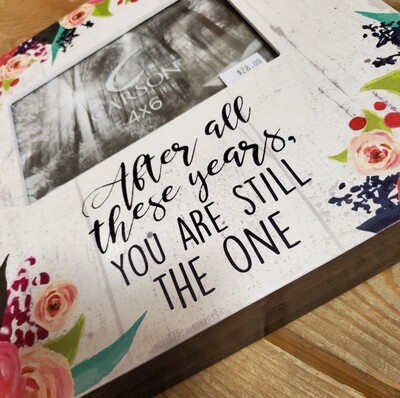 CARSON
4x6
$28.00
After all
these years,
YOU ARE STILL
THE ONE